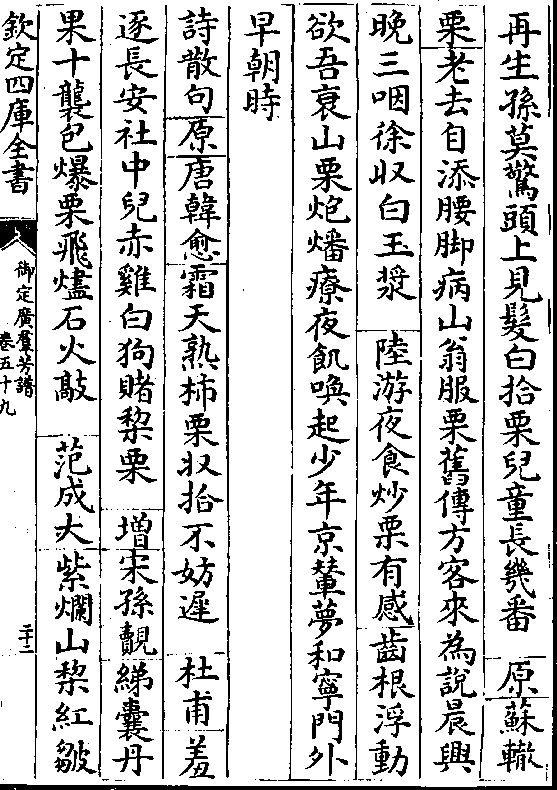 再生孫莫驚頭上見髮白拾栗兒童長幾番　原蘇轍
栗老去自添腰脚病山翁服栗舊傳方客來為説晨興
晚三咽徐収白玉漿　陸游夜食炒栗有感齒根浮動
欲吾衰山栗炮燔療夜飢喚起少年京輦夢和寧門外
早朝時
詩散句原唐韓愈霜天熟柿栗収拾不妨遲　杜甫羞
逐長安社中兒赤雞白狗賭棃栗　増宋孫覿綈囊丹
果十襲包爆栗飛燼石火敲　范成大紫爛山棃紅皺
欽定四庫全書
御定廣羣芳譜
卷五十九
二十二